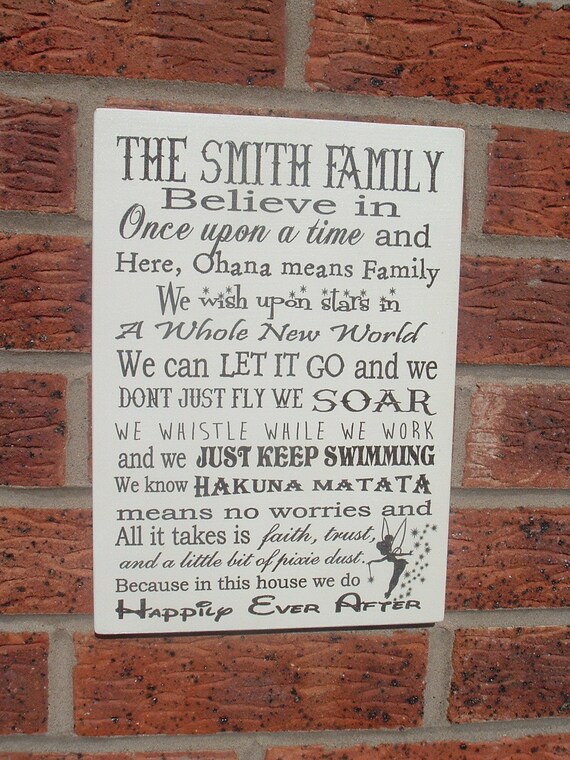 THE SMITH FAMILY
Believe in
Once upon a time and
Here, Ohana means Family
We wish upon stars in
A Whole New World
We can LET IT GO and we
DONT JUST FLY WE SOAR
WE WHISTLE WHILE WE WORK
and we JUST KEEP SWIMMING
We know HAKUNA MATATA
means no worries and
All it takes is faith, trust,
and a little bit of pixie dust.
Because in this house we do
Happily Ever After